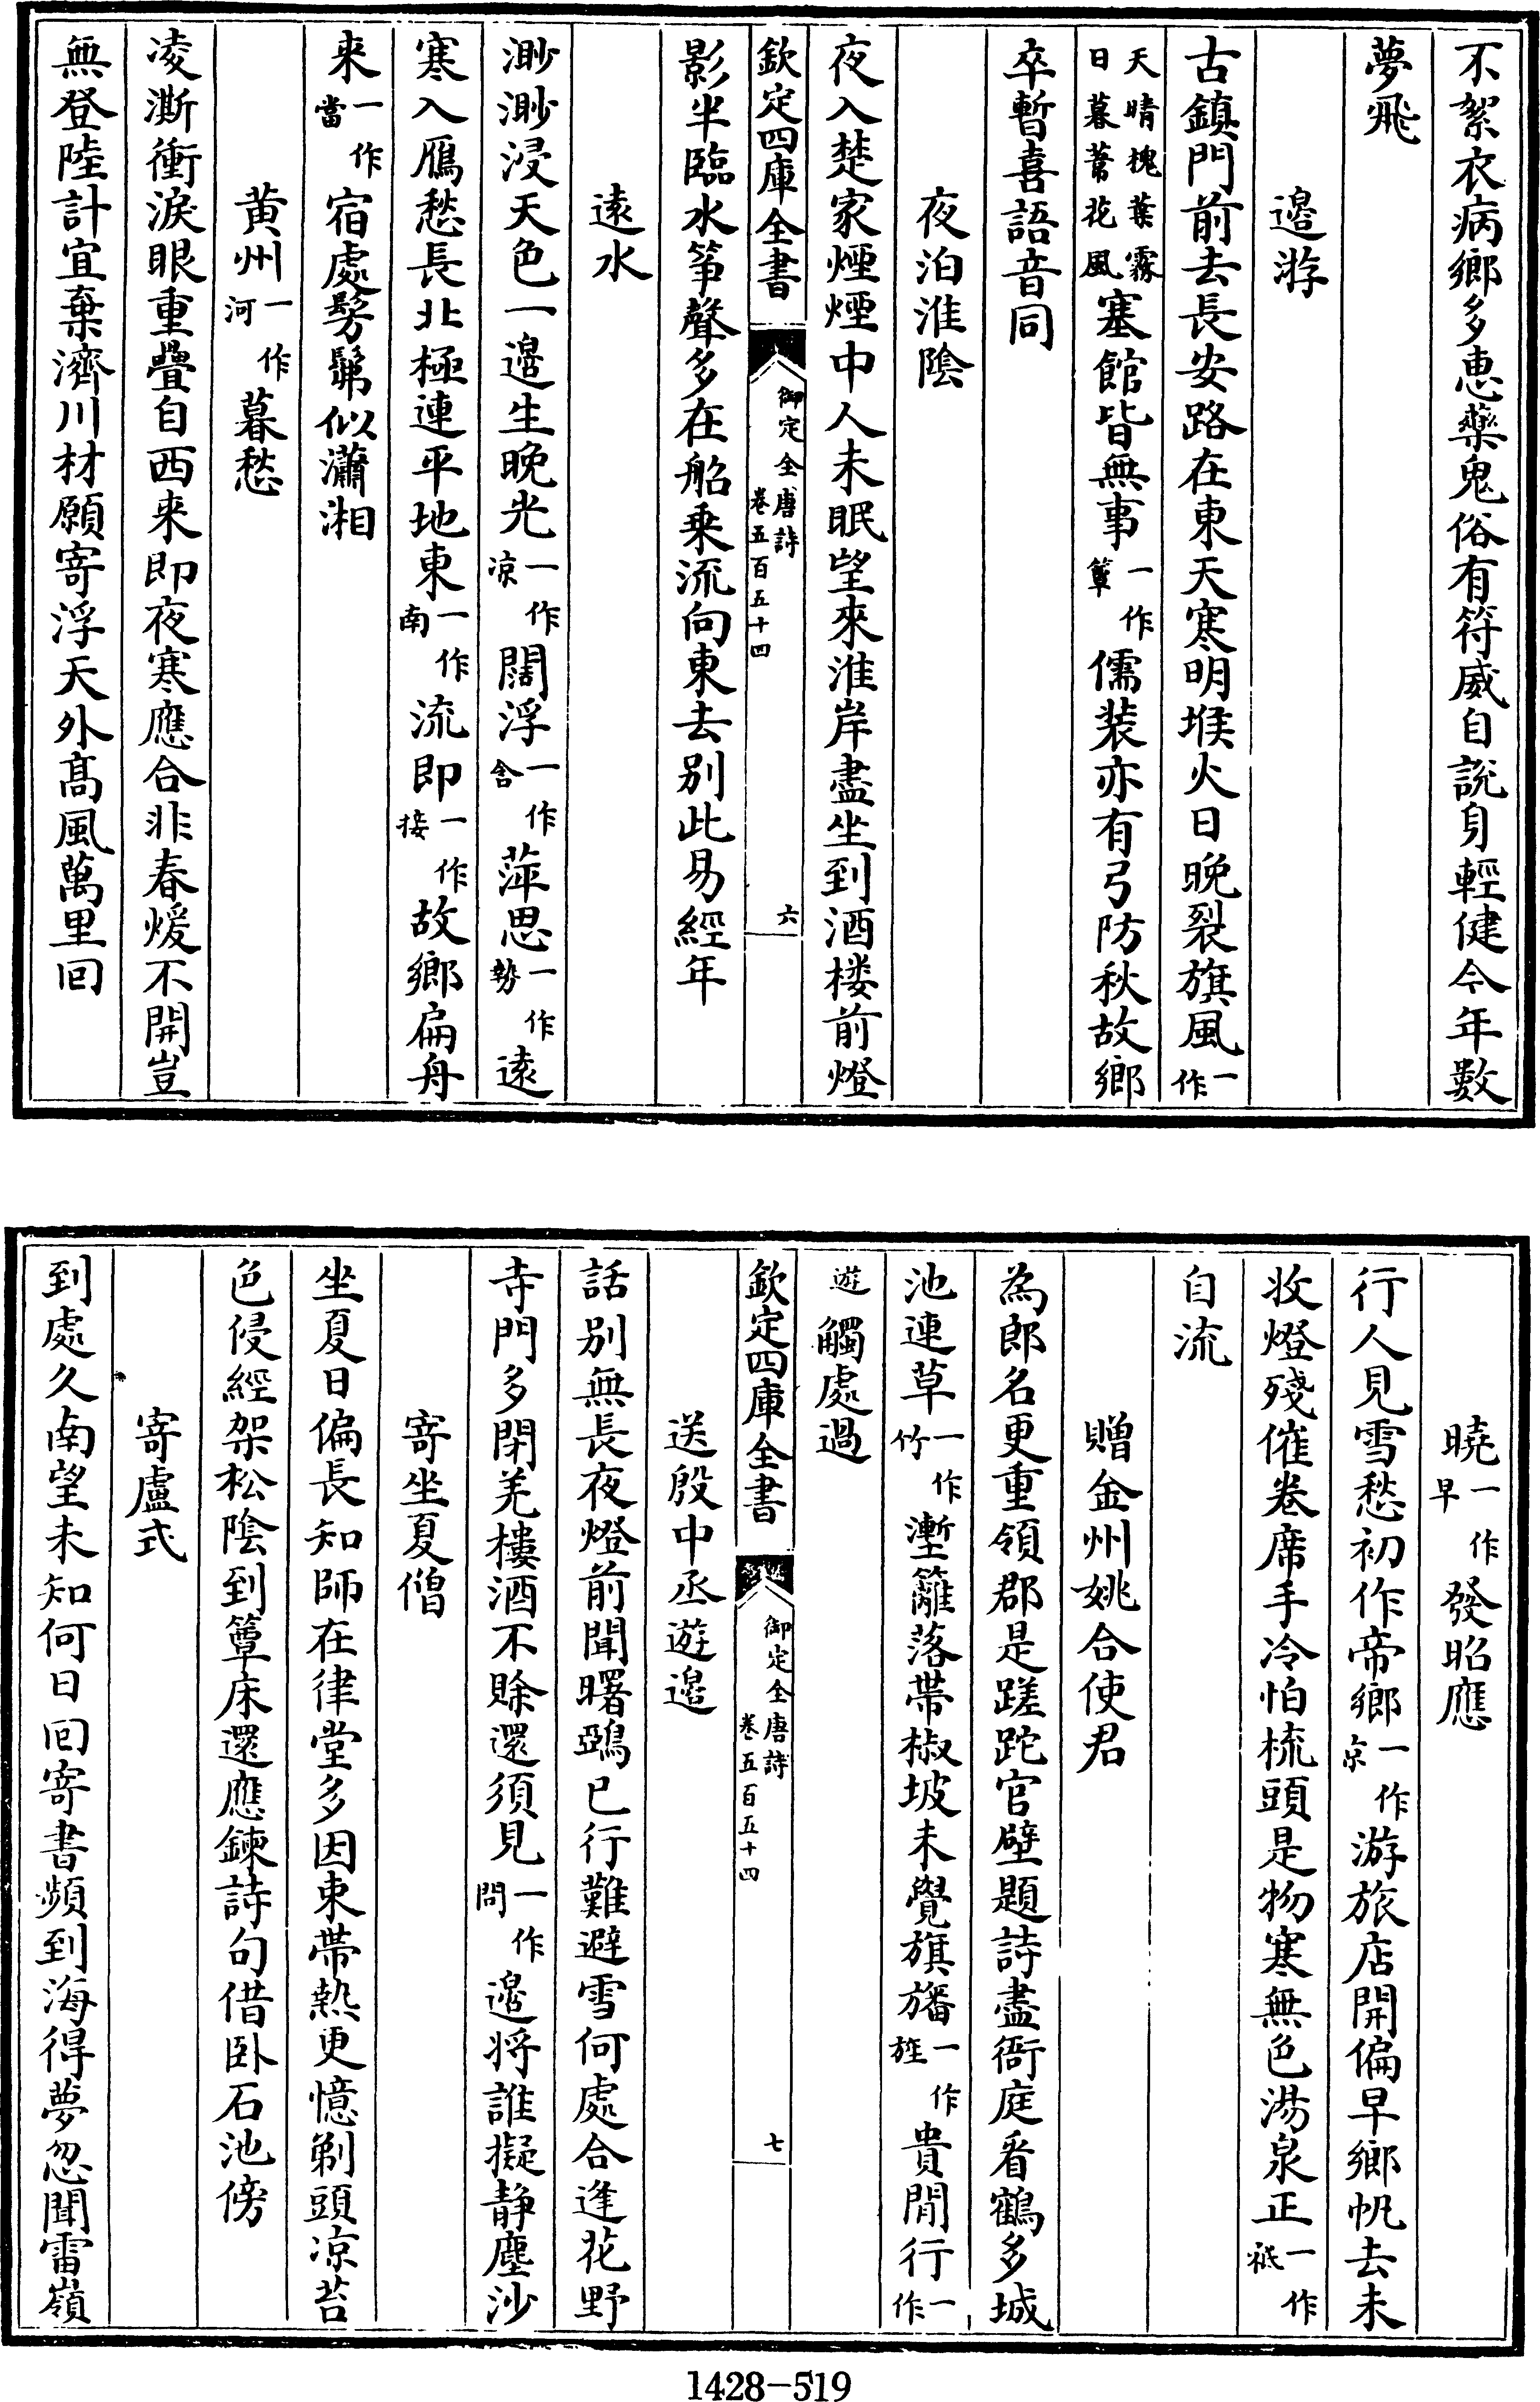 不絮衣病鄉多惠藥鬼俗有符威自説身輕健今年數
夢飛
邉游
古鎮門前去長安路在東天寒明堠火日晚裂旗風一作
天晴槐葉霧日暮菅花風塞館皆無事一作簟儒装亦有弓防秋故鄉
卒暫喜語音同
夜泊淮陰
夜入楚家煙煙中人未眠望來淮岸盡坐到酒楼前燈
欽定四庫全書
御定全唐詩
卷五百五十四
六
影半臨水筝聲多在船乗流向東去别此易經年
逺水
渺渺浸天色一邉生晚光一作凉闊浮一作含萍思一作勢逺
寒入鴈愁長北極連平地東一作南流即一作接故鄉扁舟
来一作當宿處髣髴似瀟湘
黄州一作河暮愁
凌澌衝淚眼重疊自西来即夜寒應合非春煖不開豈
無登陸計宜棄濟川材願寄浮天外髙風萬里回
曉一作早發昭應
行人見雪愁初作帝鄉一作京游旅店開偏早鄉帆去未
收燈殘催卷席手冷怕梳頭是物寒無色湯泉正一作祗
自流
贈金州姚合使君
為郎名更重領郡是蹉跎官壁題詩盡衙庭看鶴多城
池連草一作竹塹籬落帶椒坡未覺旗旛一作旌貴閒行一作
遊觸處過
欽定四庫全書
御定全唐詩
卷五百五十四
七
送殷中丞遊邉
話别無長夜燈前聞曙鵶已行難避雪何處合逢花野
寺門多閉羌樓酒不賒還須見一作問邉将誰擬静塵沙
寄坐夏僧
坐夏日偏長知師在律堂多因束帶熱更憶剃頭凉苔
色侵經架松陰到簟床還應鍊詩句借卧石池傍
寄盧式
到處久南望未知何日回寄書頻到海得夢忽聞雷嶺
1428-519